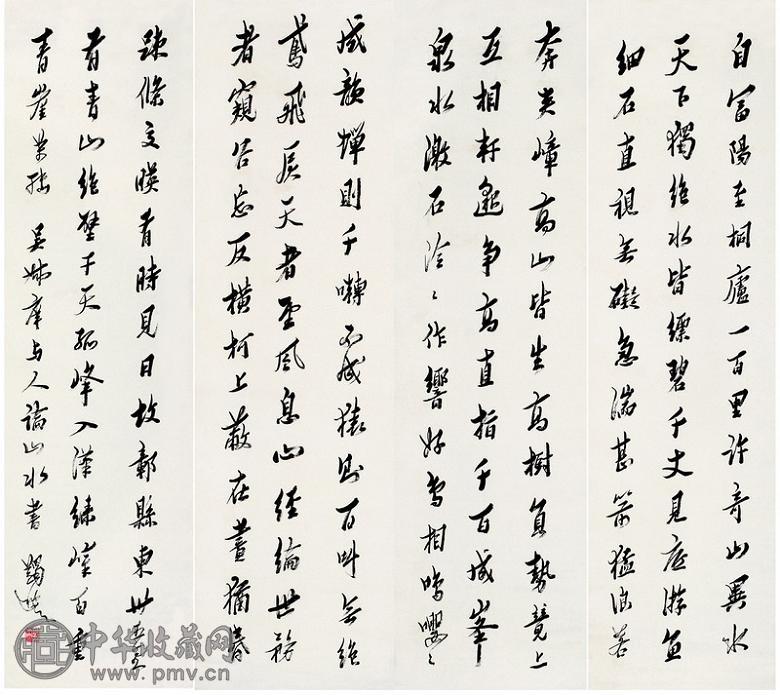 自富陽至桐廬一百里許奇山異水
天下獨絕水皆縹碧千丈見底游魚
細石直視無礙急湍甚箭猛浪若
奔夾嶂高山皆生高樹負勢競上
互相軒邈爭高直指千百成峯
泉水激石泠〻作響好鳥相鳴嚶〻
成韻蟬則千囀不 猿則百叫無絕
鳶飛戾天者望風息心經綸世務
者窺谷忘反橫柯上蔽在晝猶昏
疎條交暎有時見日故鄣縣東卅五里
有青山絕壁干天孤峰入漢綠嶂百重
青崖萬轉 吳叔庠与人論山水書 蠲
中华收藏网
www.pmv.cn